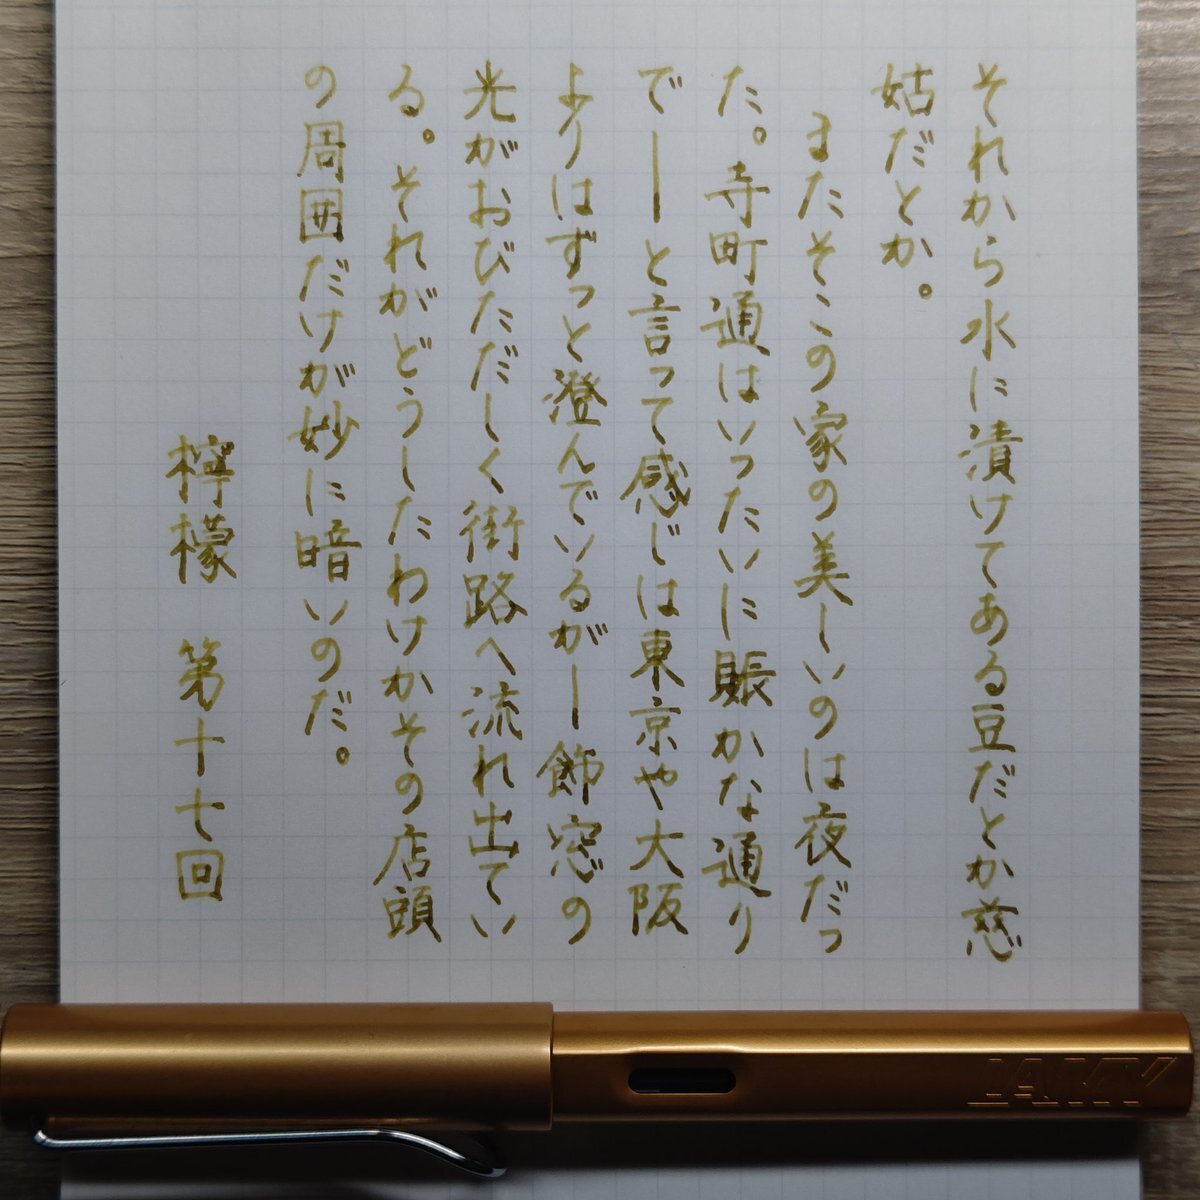 それから水に漬けてある豆だとか慈
姑だとか。
またそこの家の美しいのは夜だっ
た。寺町通はいったいに賑かな通り
で―と言って感じは東京や大阪
よりはずっと澄んでいるが―飾窓の
光がおびただしく街路へ流れ出てい
る。それがどうしたわけかその店頭
の周囲だけが妙に暗いのだ。
檸檬 第十七回
LAMY